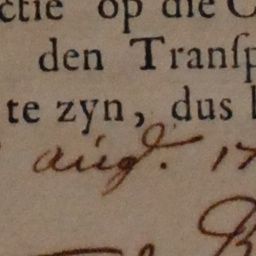 ctie op die C
den Tranſp
te zyn, dus
aug. 17